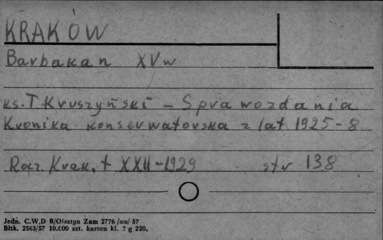 KRAKÓW
Barbakan XVw
ks. T. Kruszyński – Sprawozdania
Kronika konserwatorska z lat 1925-8
Rocz. Krak. t XXII-1929 str 138
Jedn. C.W.D R/Olsztyn Zam 2776/oo/57
Bltk. 2563/57 10.000 szt. karton kl. 7 g 220.